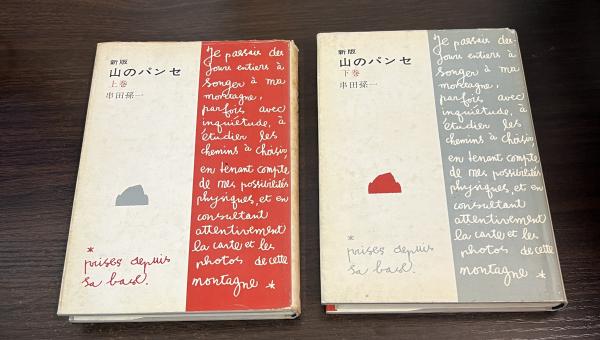 新版
山のパンセ
上巻
串田孫一
Je passais des
jours entiers à
songer à ma
montagne,
parfois avec
inquiétude, à
étudier les
chemins à choisir,
en tenant compte
de mes possibilités
physiques, et en
consultant
attentivement
la carte et les
photos de cette
montagne *
*
prises depuis
sa base.
新版
山のパンセ
下巻
串田孫一
Je passais des
jours entiers à
songer à ma
montagne,
parfois avec
inquiétude, à
étudier les
chemins à choisir,
en tenant compte
de mes possibilités
physiques, et en
consultant
attentivement
la carte et les
photos de cette
montagne *
*
prises depuis
sa base.